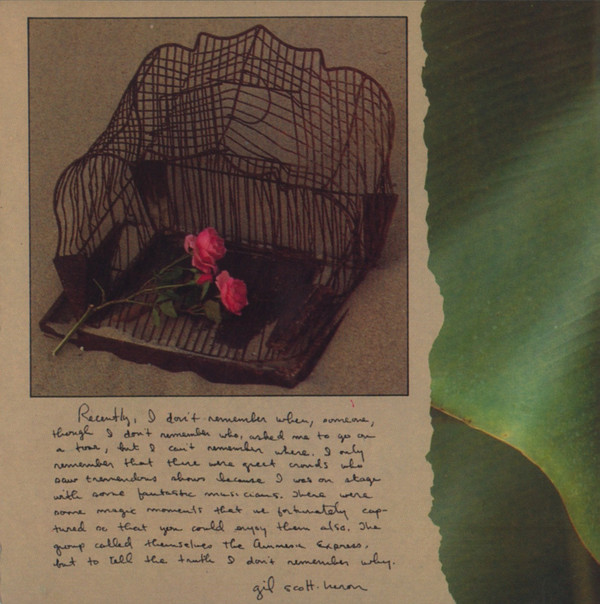 Recently, I don't remember when, someone,
though I don't remember who, asked me to go on
a tour, but I can't remember where. I only
remember that there were great crowds who
saw tremendous shows because I was on stage
with some fantastic musicians. There were
some magic moments that we fortunately cap-
tured so that you could enjoy them also. The
group called themselves The Amnesia Express.
but to tell the truth I don't remember why.
gil scott-heron